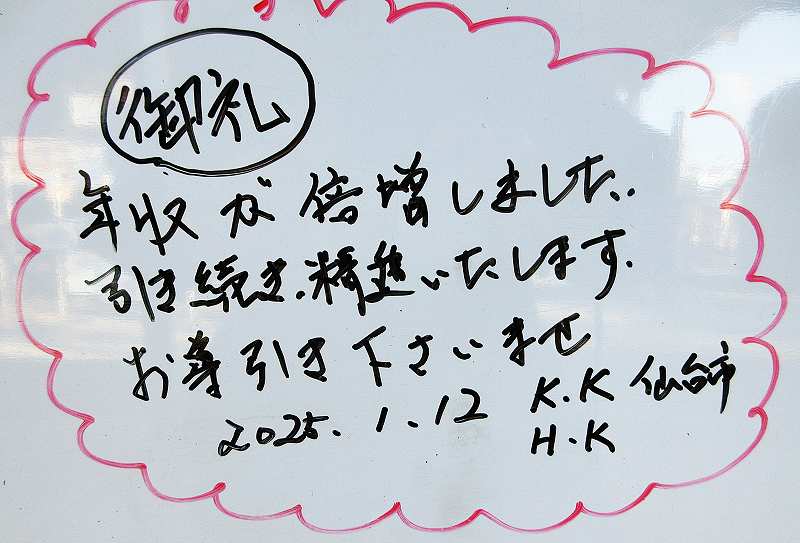 御礼
年収が倍増しました.
引き続き.精進いたします.
お導引き下さいませ
2025.1.12 K.K 仙台市
H.K